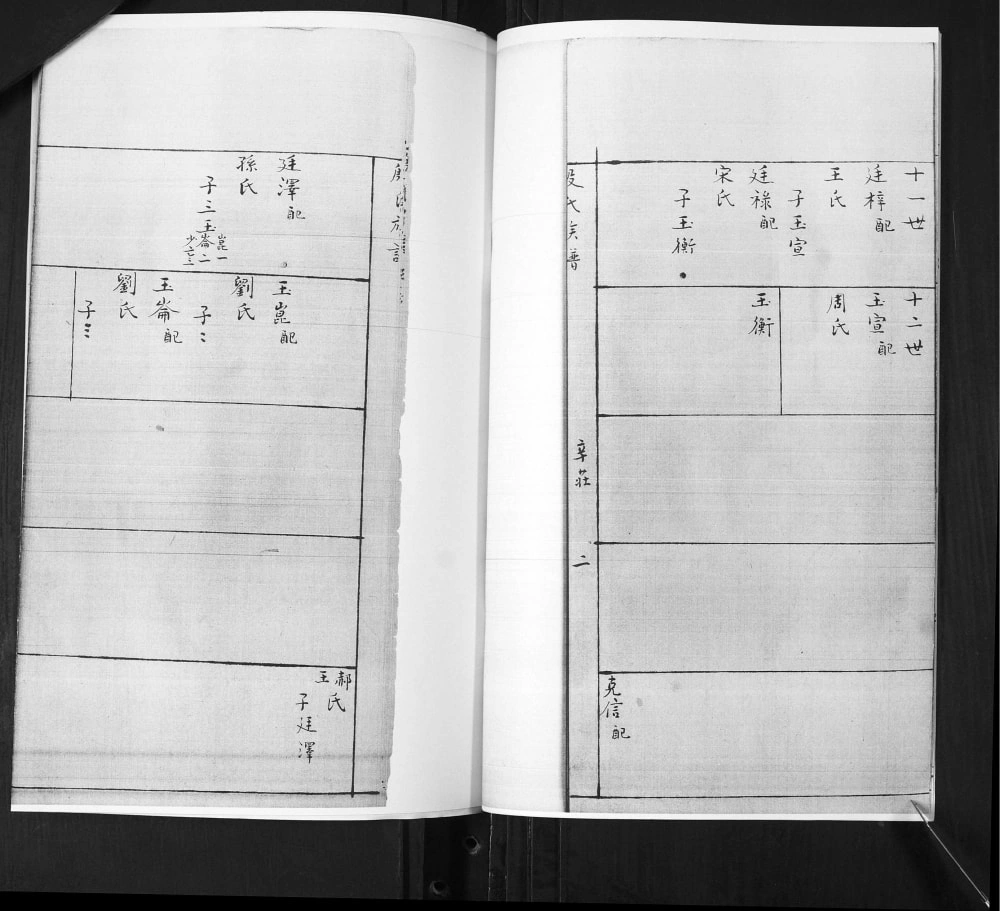 十一世
廷梓配
王氏
子玉宣
廷祿配
宋氏
子玉衡
十二世
玉宣配
周氏
玉衡
克信配
段氏族譜
辛莊
二
廷澤配
孫氏
子三玉崑一
崙二
少亡三
玉崑配
劉氏
子
玉崙配
劉氏
子三
郝氏
王
子廷澤